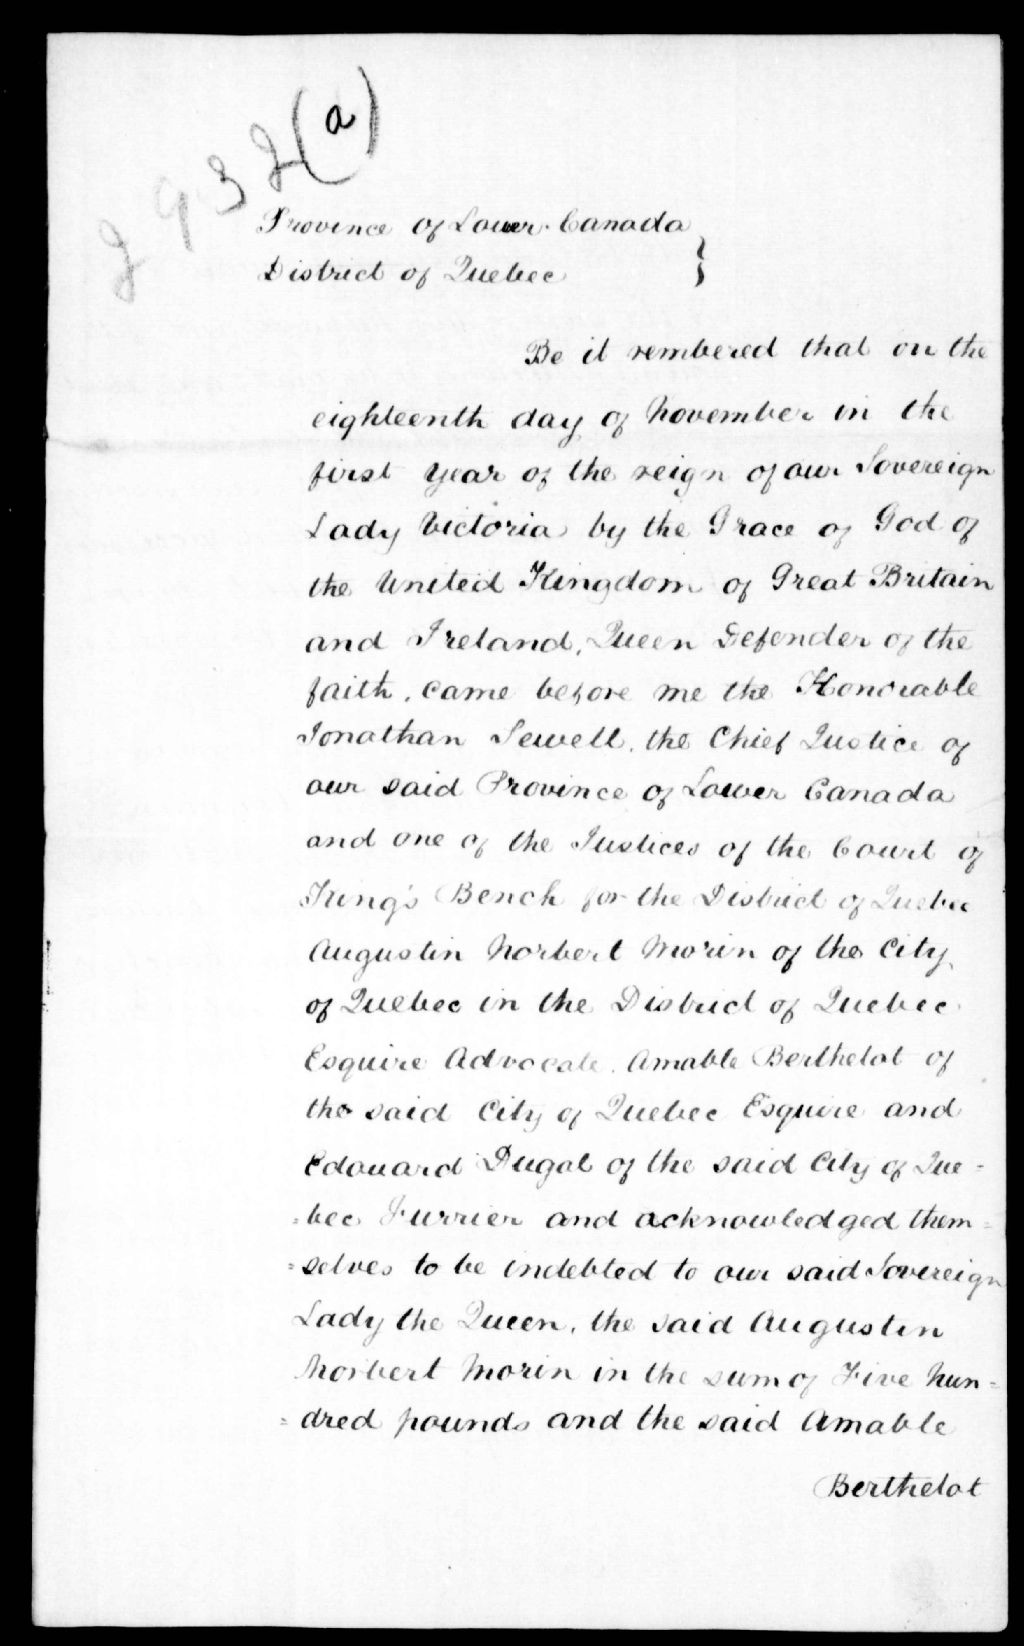 2932(a)
Province of Lower Canada }
District of Quebec }
Be it rembered that on the
eighteenth day of November in the
first year of the reign of our Sovereign
Lady Victoria by the Grace of God of
the United Kingdom of Great Britain
and Ireland, Queen Defender of the
faith, came before me the Honorable
Jonathan Sewell, the Chief Justice of
our said Province of Lower Canada
and one of the Justices of the Court of
King's Bench for the District of Quebec
Augustin Norbert Morin of the City
of Quebec in the District of Quebec
Esquire Advocate, Amable Berthelot of
the said City of Quebec Esquire and
Edouard Dugal of the said City of Que=
=bec Furrier and acknowledged them=
=selves to be indebted to our said Sovereign
Lady the Queen, the said Augustin
Norbert Morin in the sum of Five hun=
=dred pounds and the said Amable
Berthelot